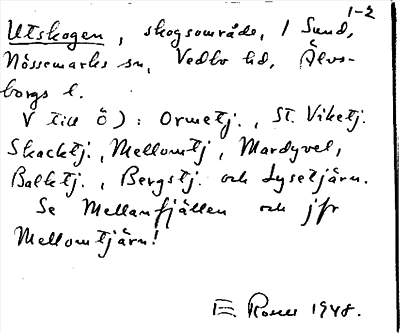 1-2
Utskogen, skogsområde, i Sund,
Nössemarks sn, Vedbo hd, Älvs-
borgs l.
V till Ö): Ormetj., St. Viketj.
Skacktj., Mellomtj, Mardyvel,
Balketj., Bergstj. och Lysetjärn.
Se Mellanfjällen och jfr
Mellomtjärn!
E Rosell 1948.